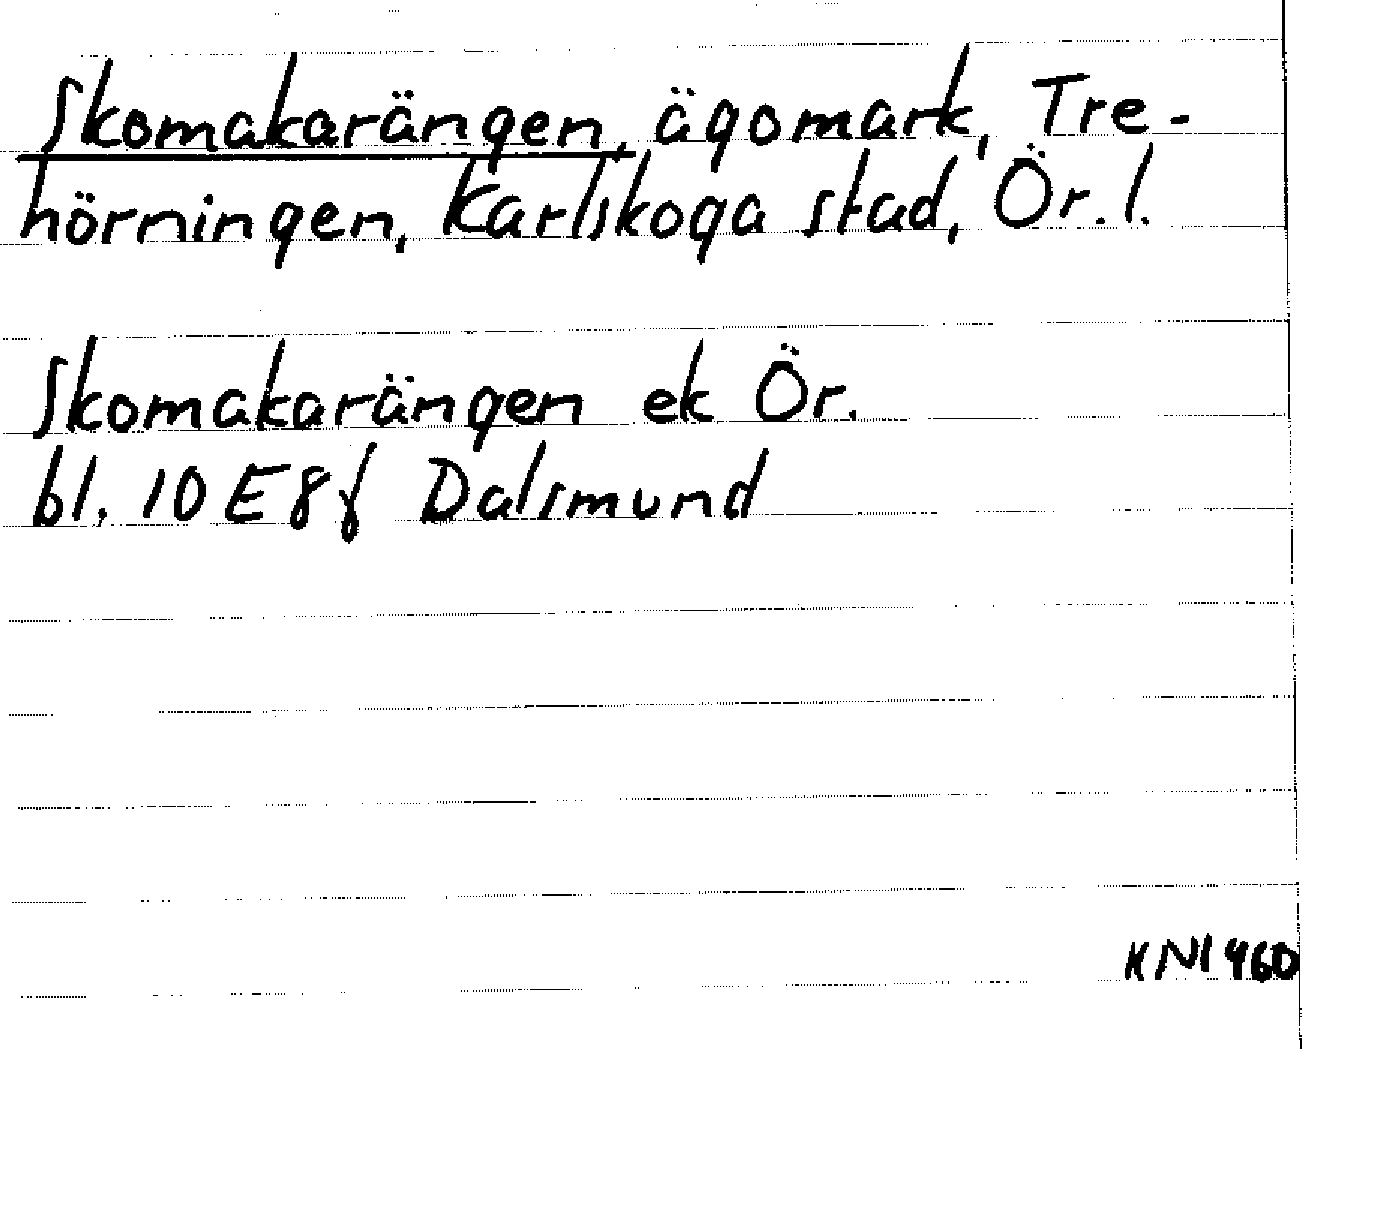 Skomakarängen, ägomark, Tre-
hörningen, Karlskoga stad, Ör. l.
Skomakarängen ek Ör.
bl. 10 E 8 f Dalsmund
KN1960